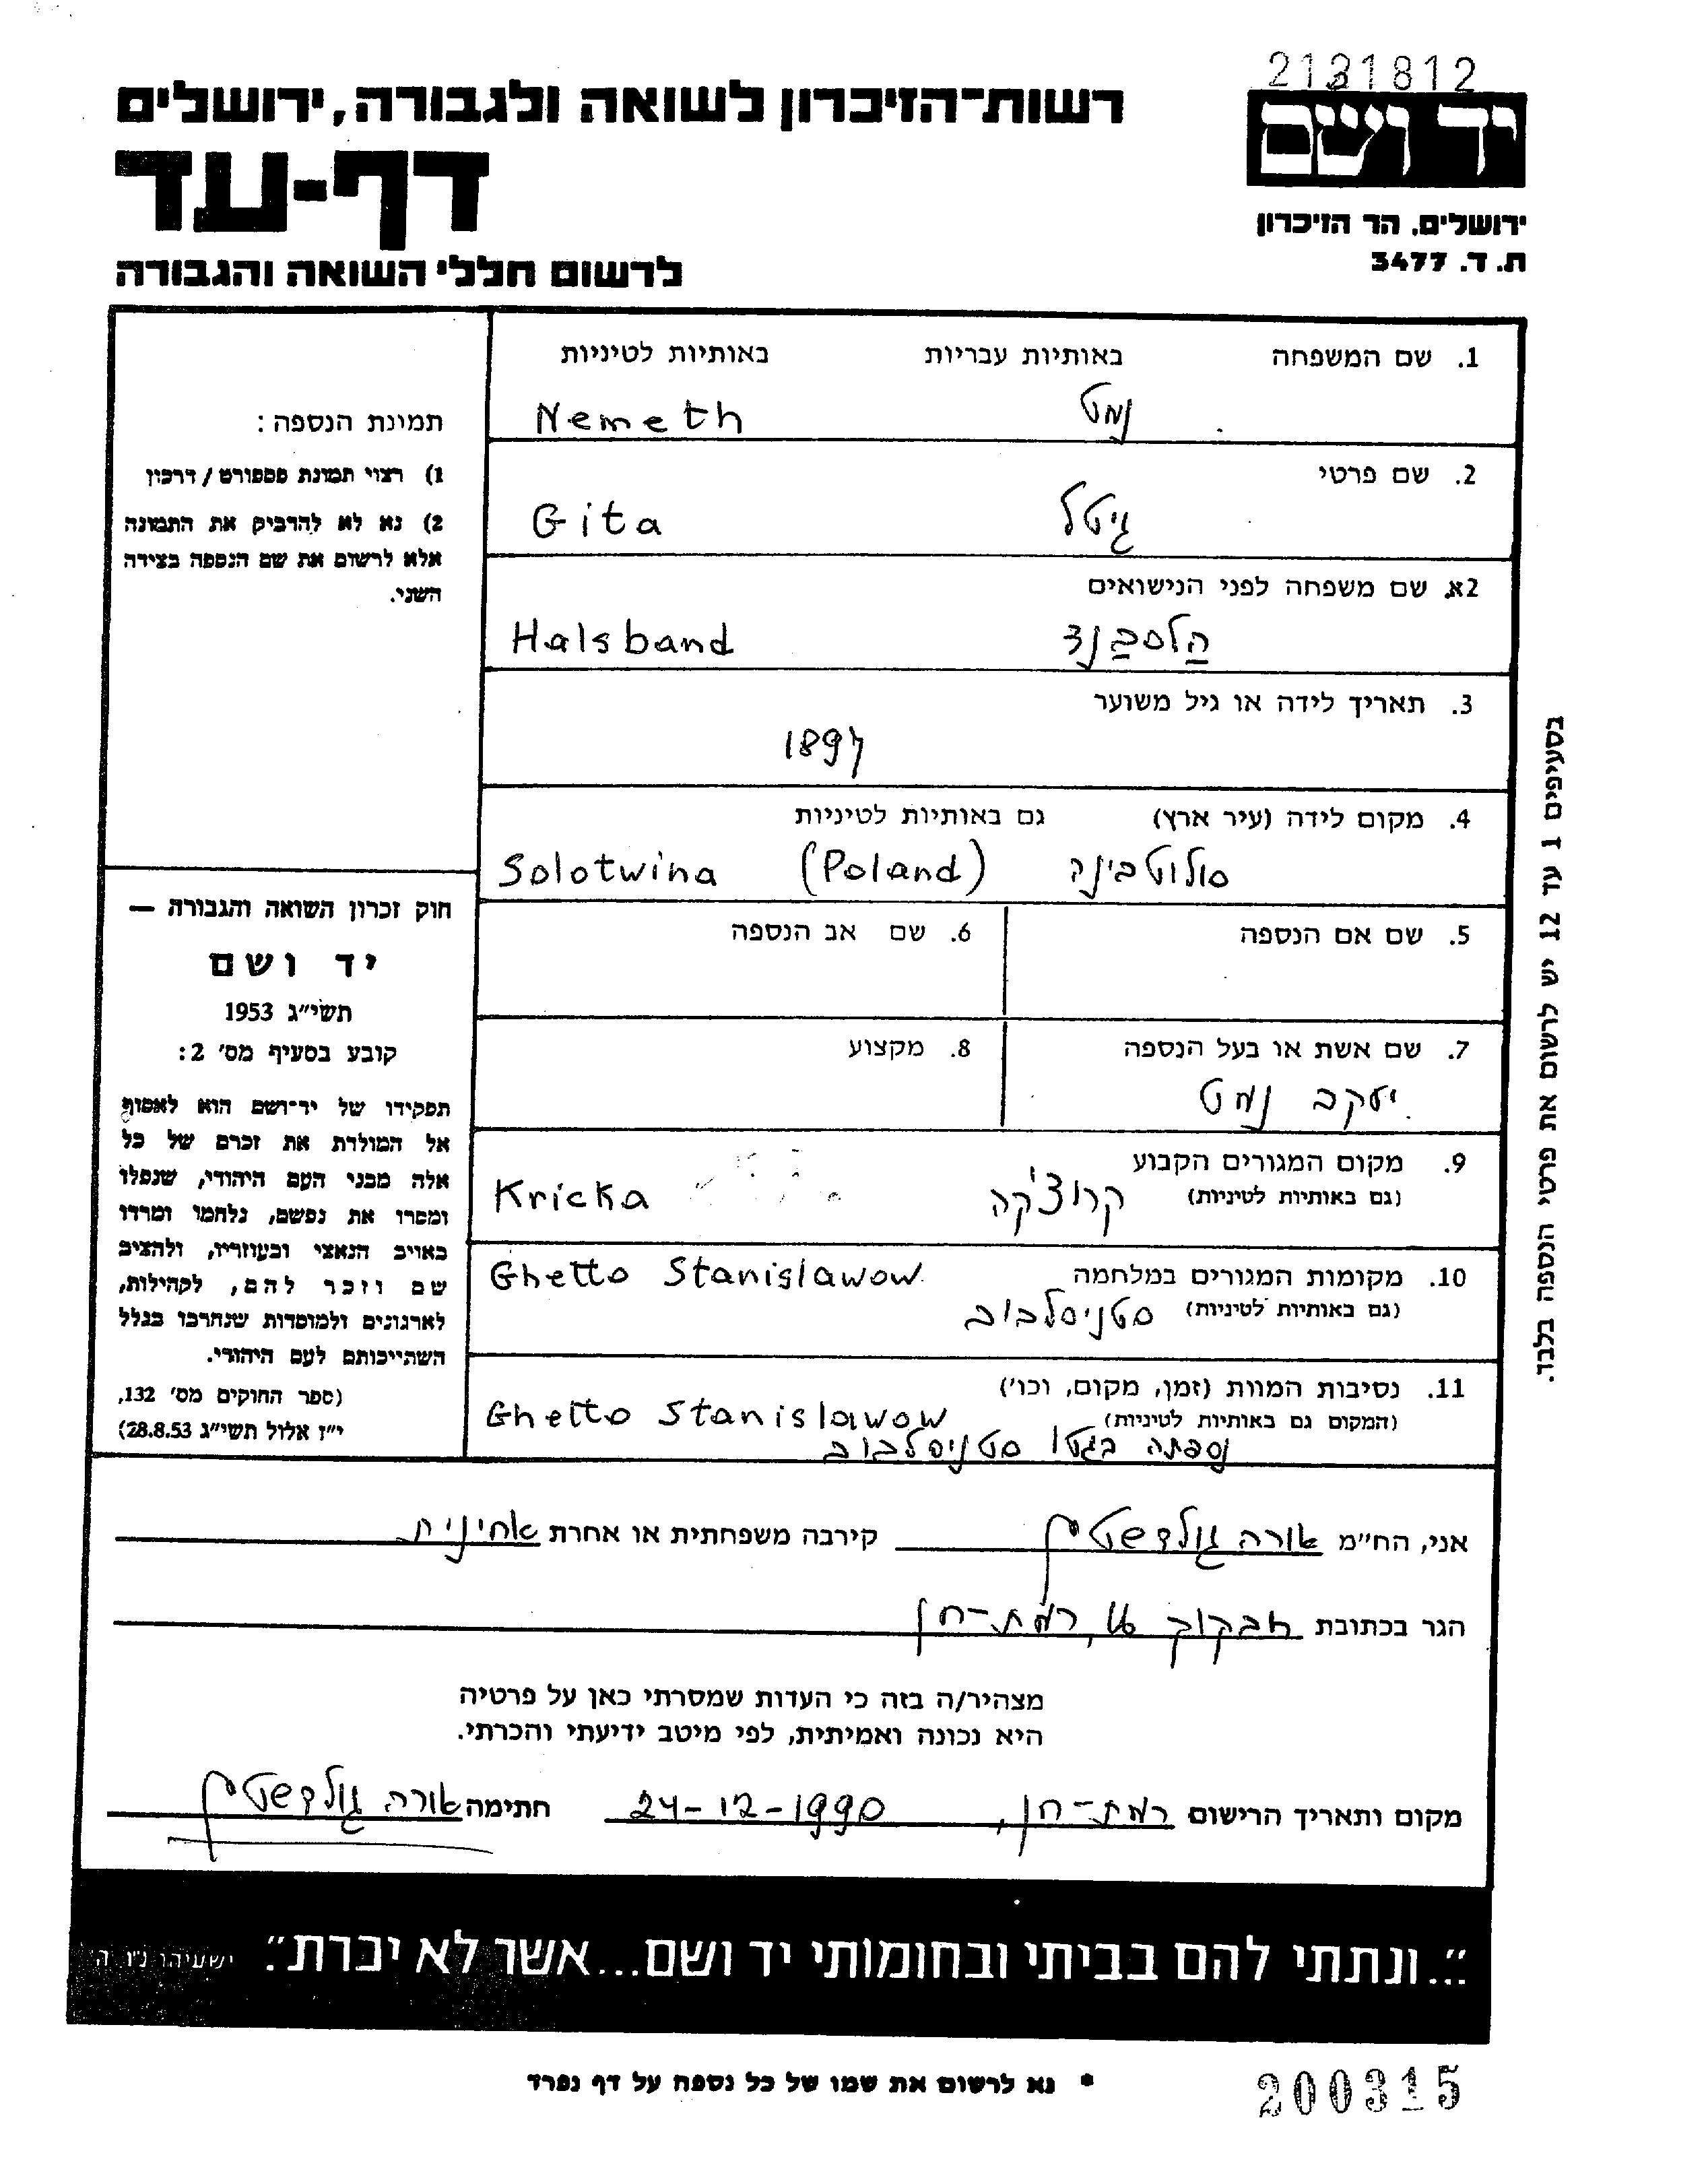 2131812
רשות-הזיכרון לשואה ולגבורה, ירושלים
יד ושם
דף-עד
ירושלים. הר הזיכרון
ת. ד. 3477
לרשום חללי השואה והגבורה
1. שם המשפחה באותיות עבריות באותיות לטיניות
נמט Nemeth
2. שם פרטי
גיטל Gita
2א. שם משפחה לפני הנישואים
הלסבנד Halsband
3. תאריך לידה או גיל משוער
1897
4. מקום לידה (עיר ארץ) גם באותיות לטיניות
סולוטבינה (Poland) Solotwina
5. שם אם הנספה 6. שם אב הנספה
7. שם אשת או בעל הנספה 8. מקצוע
יעקב נמט
9. מקום המגורים הקבוע
(גם באותיות לטיניות) קרוצ'קה Kricka
10. מקומות המגורים במלחמה Ghetto Stanislawow
(גם באותיות לטיניות) סטניסלבוב
11. נסיבות המוות (זמן, מקום, וכו')
(המקום גם באותיות לטיניות) Ghetto Stanislawow
נספתה בגטו סטניסלבוב
תמונת הנספה:
1) רצוי תמונת פספורט / דרכון
2) נא לא להדביק את התמונה
אלא לרשום את שם הנספה בצידה
השני.
חוק זכרון השואה והגבורה —
יד ושם
תשי״ג 1953
קובע בסעיף מס' 2:
תפקידו של יד-ושם הוא לאסוף
אל המולדת את זכרם של כל
אלה מבני העם היהודי, שנפלו
ומסרו את נפשם, נלחמו ומרדו
באויב הנאצי ובעוזריו, ולהציב
שם וזכר להם, לקהילות,
לארגונים ולמוסדות שנחרבו בגלל
השתייכותם לעם היהודי.
(ספר החוקים מס' 132,
י״ז אלול תשי״ג 28.8.53)
בסעיפים 1 עד 12 יש לרשום את פרטי הנספה בלבד.
אני, הח״מ אורה גולדשטיין קירבה משפחתית או אחרת אחינית
הגר בכתובת חבקוק רמת-חן
מצהיר/ה בזה כי העדות שמסרתי כאן על פרטיה
היא נכונה ואמיתית, לפי מיטב ידיעתי והכרתי.
מקום ותאריך הרישום רמת-חן, 24-12-1990 חתימה אורה גולדשטיין
״...ונתתי להם בביתי ובחומותי יד ושם...אשר לא יכרת״. ישעיהו נ״ו ה'
* נא לרשום את שמו של כל נספה על דף נפרד
200315